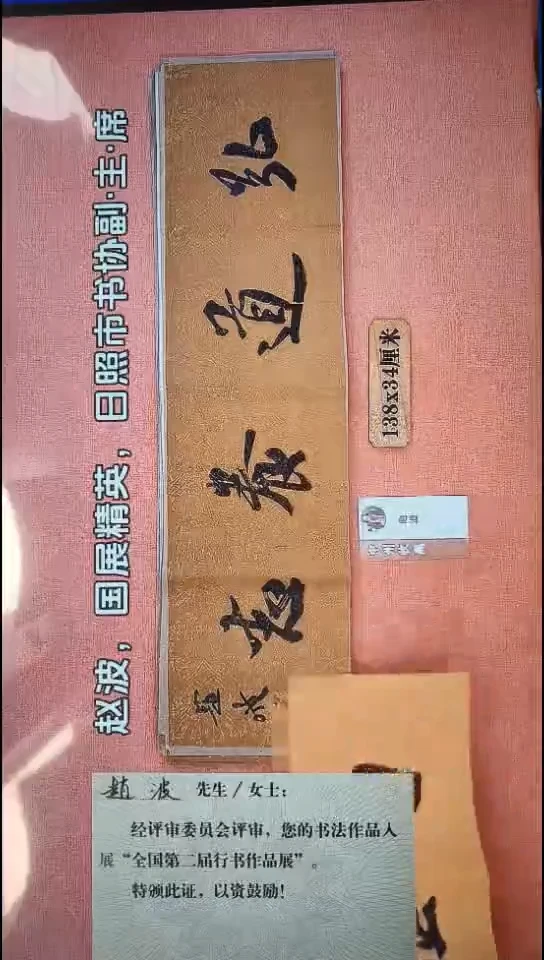 赵波，国展精英，日照市书协副·主·席
弘道養
138x34厘米
趙波 先生/女士：
经评审委员会评审，您的书法作品入
展“全国第二届行书作品展”。
特颁此证，以资鼓励！